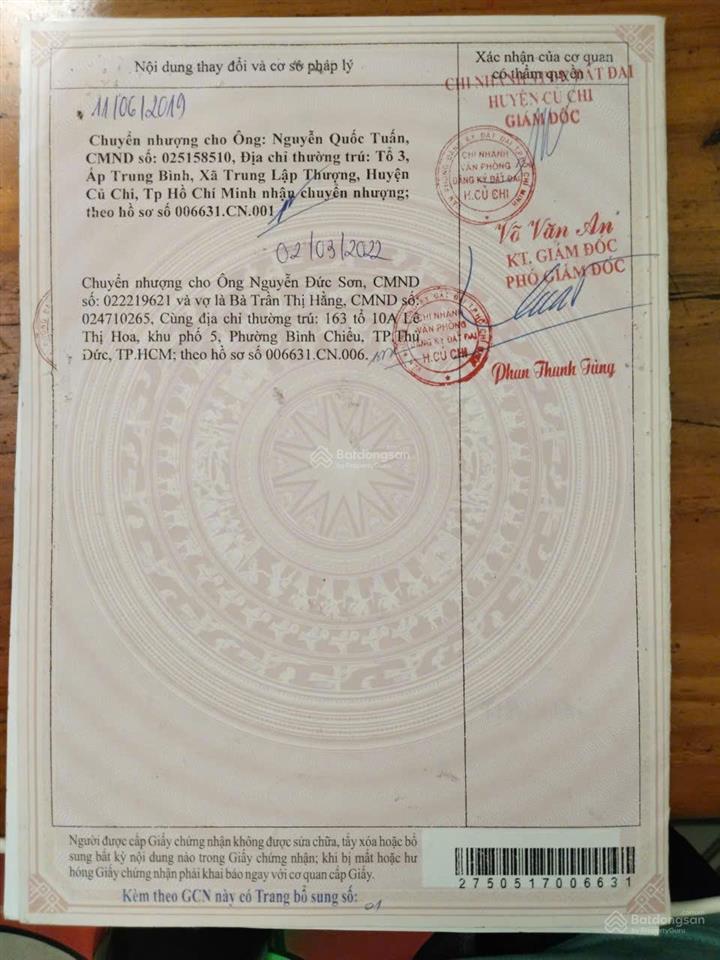 Nội dung thay đổi và cơ sở pháp lý
Xác nhận của cơ quan
có thẩm quyền
11/06/2019
Chuyển nhượng cho Ông: Nguyễn Quốc Tuấn,
CMND số: 025158510, Địa chỉ thường trú: Tổ 3,
Ấp Trung Bình, Xã Trung Lập Thượng, Huyện
Củ Chi, Tp Hồ Chí Minh nhận chuyển nhượng;
theo hồ sơ số 006631.CN.001
CHI NHÁNH ĐẤT ĐAI
HUYỆN CỦ CHI
GIÁM ĐỐC
CHI NHÁNH
VĂN PHÒNG
ĐĂNG KÝ ĐẤT ĐAI
H.CỦ CHI
Võ Văn An
02/03/2022
Chuyển nhượng cho Ông Nguyễn Đức Sơn, CMND
số: 022219621 và vợ là Bà Trần Thị Hằng, CMND số:
024710265, Cùng địa chỉ thường trú: 163 tổ 10A Lê
Thị Hoa, khu phố 5, Phường Bình Chiểu, TP.Thủ
Đức, TP.HCM; theo hồ sơ số 006631.CN.006.
KT. GIÁM ĐỐC
PHÓ GIÁM ĐỐC
CHI NHÁNH
VĂN PHÒNG
ĐĂNG KÝ ĐẤT ĐAI
H.CỦ CHI
Phan Thanh Tùng
Batdongsan
by PropertyGuru
Người được cấp Giấy chứng nhận không được sửa chữa, tẩy xóa hoặc bổ
sung bất kỳ nội dung nào trong Giấy chứng nhận; khi bị mất hoặc hư
hỏng Giấy chứng nhận phải khai báo ngay với cơ quan cấp Giấy.
2750517006631
Kèm theo GCN này có Trang bổ sung số: 01
Batdongsan
by PropertyGuru